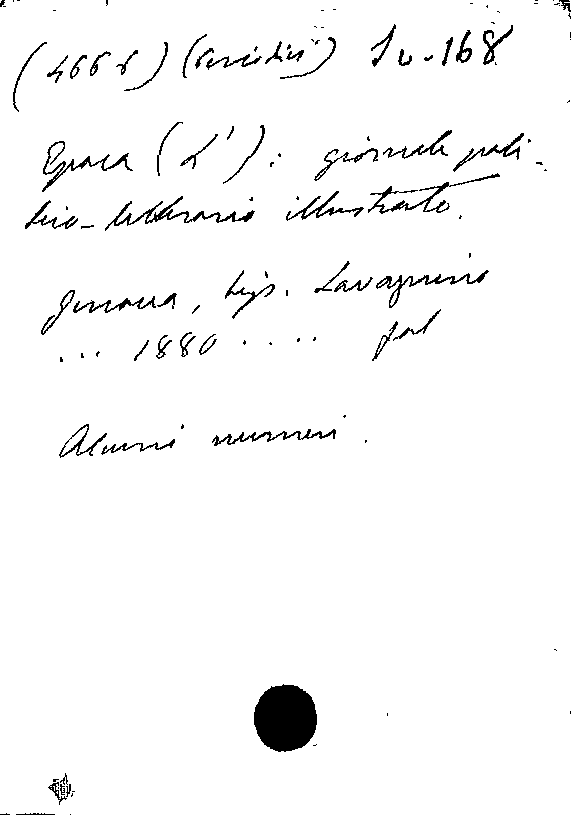 (466 8) (Periodici) Sv-168
Epoca (L'): giornale poli-
tico-letterario illustrato.
Genova, tip. Lavagnino
... 1880 .... fol
Alcuni numeri.